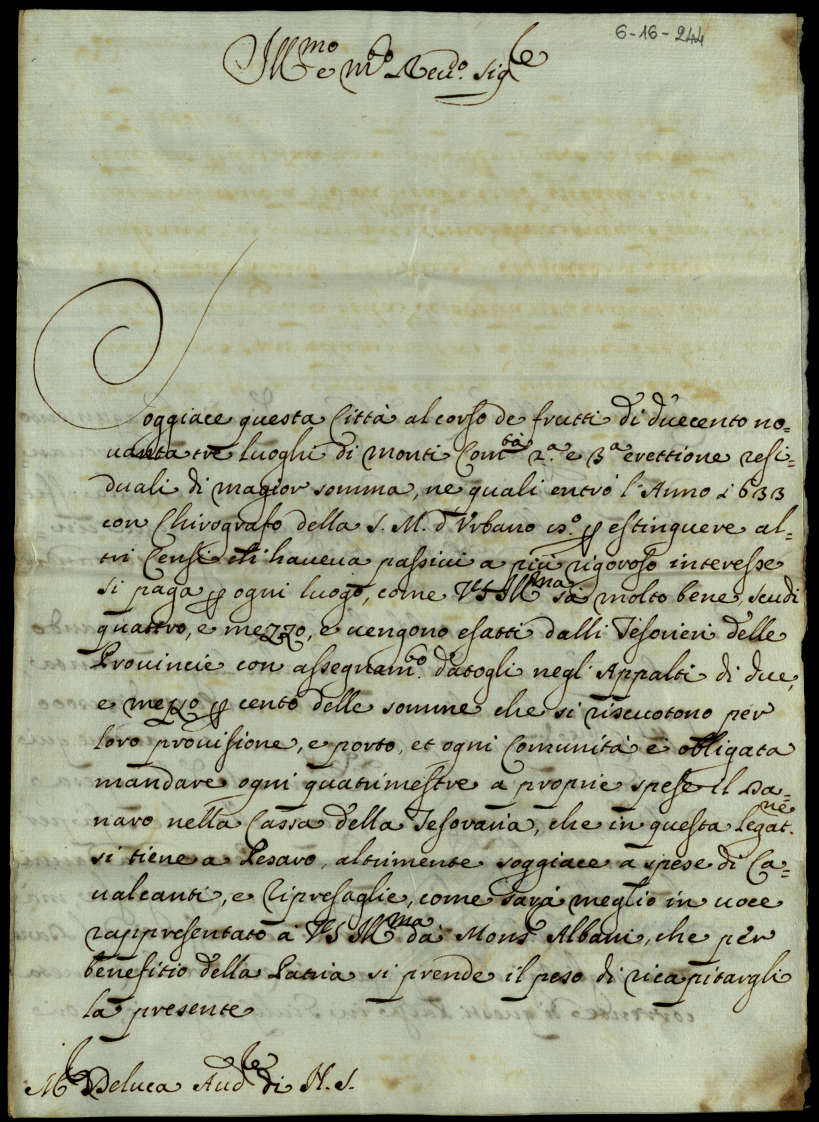 6-16-244
Ill.mo e m.to Reu.do Sig.re
Soggiace questa Città al corso de frutti di duecento no=
uanta tre luoghi di monti Com.tà 2.a e 3.a erettione resi=
duali di magior somma, ne quali entrò l'Anno 1633
con Chirografo della S. M. d'Vrbano 8.o p estinguere al=
tri Censi che haueua passiui a più rigoroso interesse
si paga p ogni luogo, come VS Ill.ma sà molto bene, scudi
quattro, e mezzo, e uengono esatti dalli Tesorieri delle
Prouincie con assegnam.to datogli negl'Appalti di due,
e mezzo p cento delle somme che si riscuotono per
loro prouisione, e porto, et ogni Comunità è obligata
mandare ogni quatrimestre a proprie spese il Da=
naro nella Cassa della Tesoraria, che in questa legat.ne
si tiene a Pesaro, altrimente soggiace a spese di Ca=
ualcanti, e Ripresaglie, come sarà meglio in uoce
rappresentato à VS Ill.ma da Mons.r Albani, che per
benefitio della Patria si prende il peso di ricapitargli
la presente
M.r Deluca Aud.re di N. S.